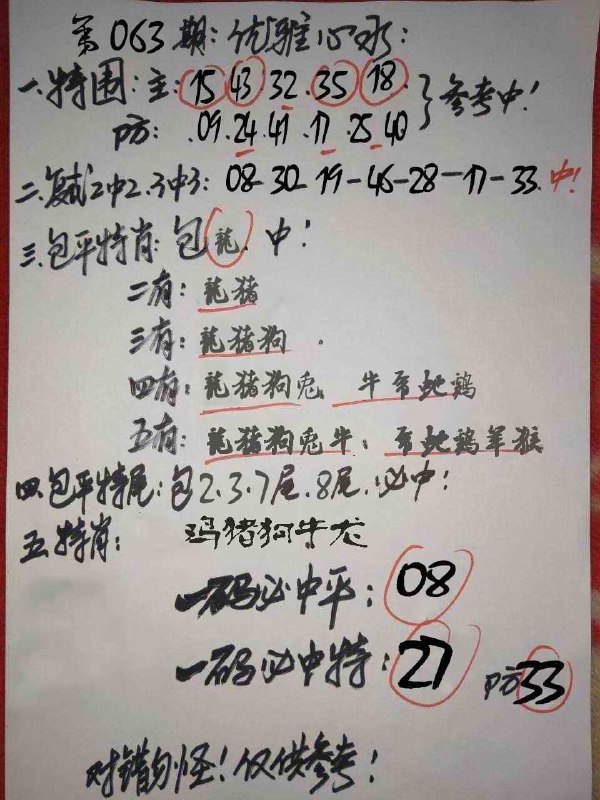 第063期:优雅心水:
一.特围:主:15 43.32.35.18.
防:.09.24.41.17.25.40
}参考中!
二.复式2中2.3中3:08-30-19-46-28-17-33.中!
三.包平特肖:包龍.中!
二有:龍猪
三有:龍猪狗.
四有:龍猪狗兎、牛蛇鷄
五有:龍猪狗兎牛、蛇鷄羊猴
四.包平特尾:包2.3.7尾.8尾.必中!
五.特肖:鸡猪狗牛龙
一码必中平:08
一码必中特:27 防33
对错勿怪!仅供参考!